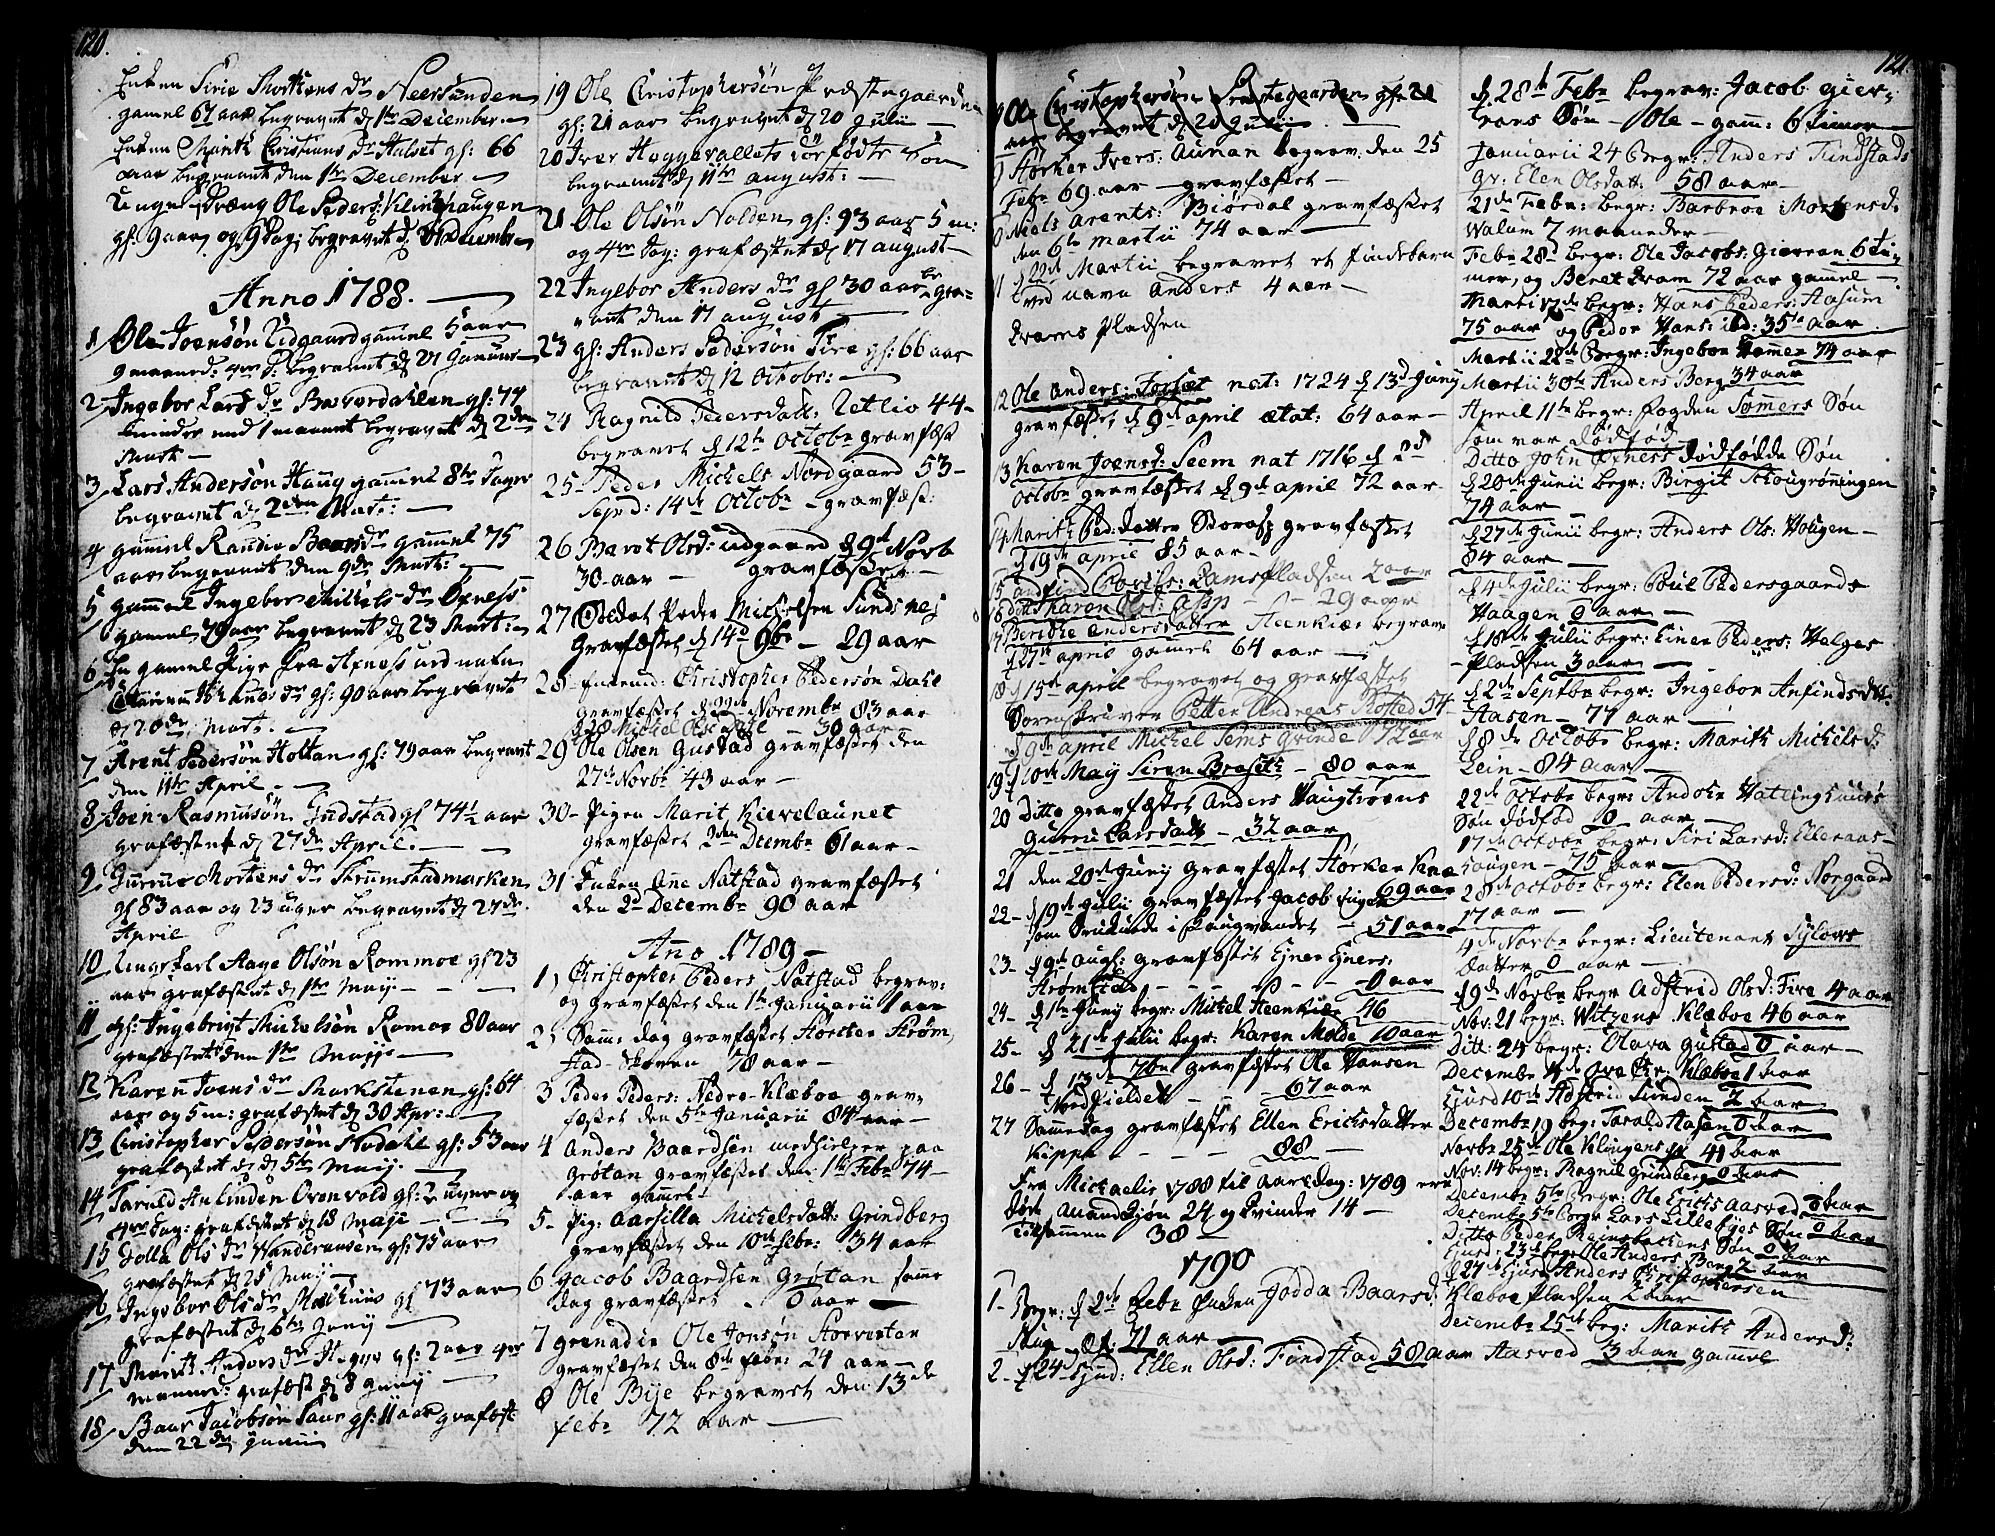 120.
Enken Sirie Mortens dr Neersunden
gamel 67 aar begravet d 1ste December
Enken Marith Christians dr Halset gl: 66
aar begravet den 1ste December
Unge Dræng Ole Peders: Klinghaugen
gl: 9 aar og 9 Dag: begravet d Decembr
Anno 1788.
1 Ole Joensøn Lidgaard gammel 5 aar
9 maaned: begravet d 21 Januari
2 Ingebor Lars dr Bævordahlen gl: 74
begravet d 2den
Mart
3 Lars Andersøn Haug gammel 8te Dager
begravet d 2den Mart:
4 gammel Randie Baars dr gammel 75
aar begravet den 9de Mart:
5 gammel Ingebor Mikkels dr Øxness
gammel 79 aar begravet d 23 Mart:
6 En gammel Pige fra Øxness ved nafn
gl: 90 aar begravet
d 20de Mart:
7 Arent Pedersøn Holtan gl: 79 aar begravet
dem 11te April
8 Joen Rasmusøn Fundstad gl 74½ aar
grafæstet d 27de April.
9 Gurrue Mortens dr Skrumstadmarken
gl 83 aar og 23 uger begravet d 27de
April
10 Ungkarl Aage Olsøn Rommoe gl 23
aar grafæstet d 1ste Maij
11 gl: Ingebrigt Mickelsøn Romoe 80 aar
grafæstet den 1ste Maij
12 Karen Joens dr Markstenen gl: 64
aar og 5 m: grafæstet d 30 Apr:
13 Christopher Pedersøn Nodahl gl: 53 aar
grafæstet d 5te Maij
14 Tarald An Linden Ovenvold gl: 2 uger og
4re Dag: grafæstet d 18 Maje
15 Golla Ols dr Vandraasen gl: 75 aar
grafæstet d 25 Maij
16 Ingebor Ols dr Molhuus gl 73 aar
grafæstet d 6te Junij
17 Marith Anders dr Hegge gl: 2 aar 4re
maaned: grafæst d 8 Junij
18 Baar Jacobsøn Saur gl: 11 aar grafæst
dem 22de Junii
19 Ole Christophersøn Præstegaarden
gl: 21 aar begravet d 20 Julii
20 Iver Hoggevallets dørfødte Søn
begravet d 11te august:
21 Ole Olsøn Nolden gl: 93 aar 5 m:
og 4re Dag: grafæstet d 17 august
22 Ingebor Anders dr gl 30 aar begra-
vet den 17 august
23 gl: Anders Pedersøn Fire gl: 66 aar
begravet d 12 Octobr:
24 Ragnild Pedersdatt: Letlio 44-
begravet d 12te Octobr gravfæst
25- Peder Michels Nordgaard 53-
Sejvd: 14de Octobr - gravfæst:
26 Berot Olsd: udgaard d 9d Novb
30 aar - gravfæstet
27 Soldat Peder Michelsen Sundsnes
Gravfæstet d 14d 9br - 29 aar
28- Enkemd: Christopher Pedersøn Dahl
gravfæstet d 22de Novembr 83 aar
Michel Ols - 30 aar
29 Ole Olsen Gustad gravfæstet den
27de Novbr 43 aar -
30- Pigen Marit Kievelaunet
gravfæstet 2den Decembr 61 aar -
31 Enken Ane Natstad gravfæstet
den 2d Decembr 90 aar
Ano 1789 -
1) Christopher Peders Natstad begrav:
og gravfæstet den 1te Januarii 1 aar
2) Samme dag gravfæstet Størcker Strøm,
stad-Skoven 78 aar -
3 Peder Peders: Nedre-Klæboe grav,
fæstet den 5te Januarii 84 aar -
4 Anders Baardsen medhielper paa
Grøtan gravfæstet den 1te Febr 74-
aar gamel
5- Pig: Aarsilla Michelsdatt: Grindberg
gravfæstet den 10de Febr: 34 aar
6 Jacob Baardsen Grøtan samme
dag gravfæstet - 0 aar -
7 grenadir Ole Jonsøn Storvestan
gravfæstet den 8de Febr: 24 aar -
8 Ole Bije begravet den 13de
febr 72 aar -
121.
9 Ole Christophersøn Præstegaarden gl: 21
aar begravet d 20 Julii
9 Størker Ivers: Aunan begrav: den 25
Febr 69 aar - gravfæstet -
10 Niels Arents: Biørdal gravfæstet
den 6te Martii 74 aar -
11 d 22de Martii begravet et findebarn
ved navn Anders 4 aar -
Pladsen
12 Ole Anders: Forset nat: 1724 d 13d Junij
gravfæstet d 9d april ætat: 64 aar -
13 Karen Joensd: Seem nat 1716 d 2d
Octobr gravfæstet d 9d april 72 aar
14 Marith Ped: Datter Boraas gravfæstet
d 19de april 85 aar -
15 Pladsen 2 aar
16 ditto Karen Ols: Asp - - 29 aar
17 Berethe Andersdatter Steenkiær begrave
d 27de april gamel 64 aar -
18 d 15d april begravet og gravfæstet
Sorenskriver Petter Andreas Rofted 54-
d 9de april Michel Sems Grinde 72 aar
19 d 10de Maij Siren Braseth - 80 aar
20 Ditto gravfæstet Anders Haugtrøens
Gurru Larsdatt - 32 aar
21 den 20de Junij gravfæstet Størker Kne
69 aar
22- d 19de Julii gravfæstet Jacob
som Druknede i Haugvandet - 51 aar
23- d 9de Augs: gravfæstet Ejner Ejners:
Strømstad - - - - 0 aar
24- d 1te Junij begr: Michel Steenkiær 46
25- d 21de Julii begr: Karen Molde 10 aar
26- d 13de 7br gravfæstet Ole Hansen
Nordfieldet - - 67 aar
27 Samedag gravfæstet Ellen Erichsdatter
Kippe - - - - 88 -
Fra Michaelis 1788 til aarsdag: 1789 ere
døde Mandkjøn 24 og Qvinder 14 -
Tilsammen 38 -
1790
1- Begr: d 2de Febr Enken Godda Baarsd:
Haug æt: 71 aar -
2- d 24d Ejusd: Ellen Olsd: Fundstad 58 aar
d 28de Febr begrav: Jacob Gier,
rans Søn - Ole - gam: 6 timer
Januarii 24 Begr: Anders Fundstads
qv: Elen Olsdatt: 58 aar -
21de Febr: begr: Barbroe Mortensd:
Walum 7 maaneder -
Febr 28d begr: Ole Jacobs: Gierran 6 Ti,
mer, og Beret Tram 72 aar gamel -
Marti 17de begr: Hans Peders: Aasum
75 aar og Peder Hans: ibd: 35te aar
Martii 22de Begr: Ingebor Hammer 74 aar
Martii 30te Anders Berg 34 aar
April 11te begr: fogden Sommers Søn
som var Dødfød
Ditto John Øxness dødfødde Søn
d 20de Junii begr: Birgit Schougrøningen
74 aar -
d 27de Junii begr: Anders Ols: Holgen -
84 aar -
d 4de Julii begr: Poul Pedersgaards
Haagen 0 aar -
d 18de Julii begr: Einer Peders: Helges
Pladsen 3 aar -
d 2de Septbr begr: Ingebor Anfindsdtt:
Aasen - 77 aar -
d 8de Octobr begr: Marith Michelsd:
Lein - 84 aar -
22de Octobr begr: Anders Hallinghuus
Søn dødfød 0 aar -
17de Octobr begr: Siri Larsd: Elleraas-
haugen - 75 aar -
28de Octobr begr: Elen Pedersd: Norgaard
17 aar -
4de Novbr begr: Lieutenant Sylows
Datter 0 aar -
d 9de Novbr begr Adstrid Olsd: Fire 4 aar
Nov: 21 begr: Witzens Klæboe 46 aar
Ditt: 24 begr: Olava Gustad 0 aar -
Decembr Klæboe 1 aar
Ejusd 10de Adstrid Sunden 2 aar
Decembr 19 beg: Tarald Aasen 0 aar
Novbr 25de Ole Klingens 41 aar
Nov: 14 begr: Ragnil Grindberg 0 aar
Decembr 5te Begr: Ole Erichs Aasved 0 aar
Decembr 5te Begr Lars Lillebyes Søn 0 aar
Ditto Peder Reinsbackens Søn 0 aar
Ejusd: 23de begr: Ole Anders: Berg 2 aar
d 27de Ejusd Anders Christophersen
Klæboe Pladsen 2 aar
Decembr 25de beg: Marith Andersd:
Aasved 3 aar gamel